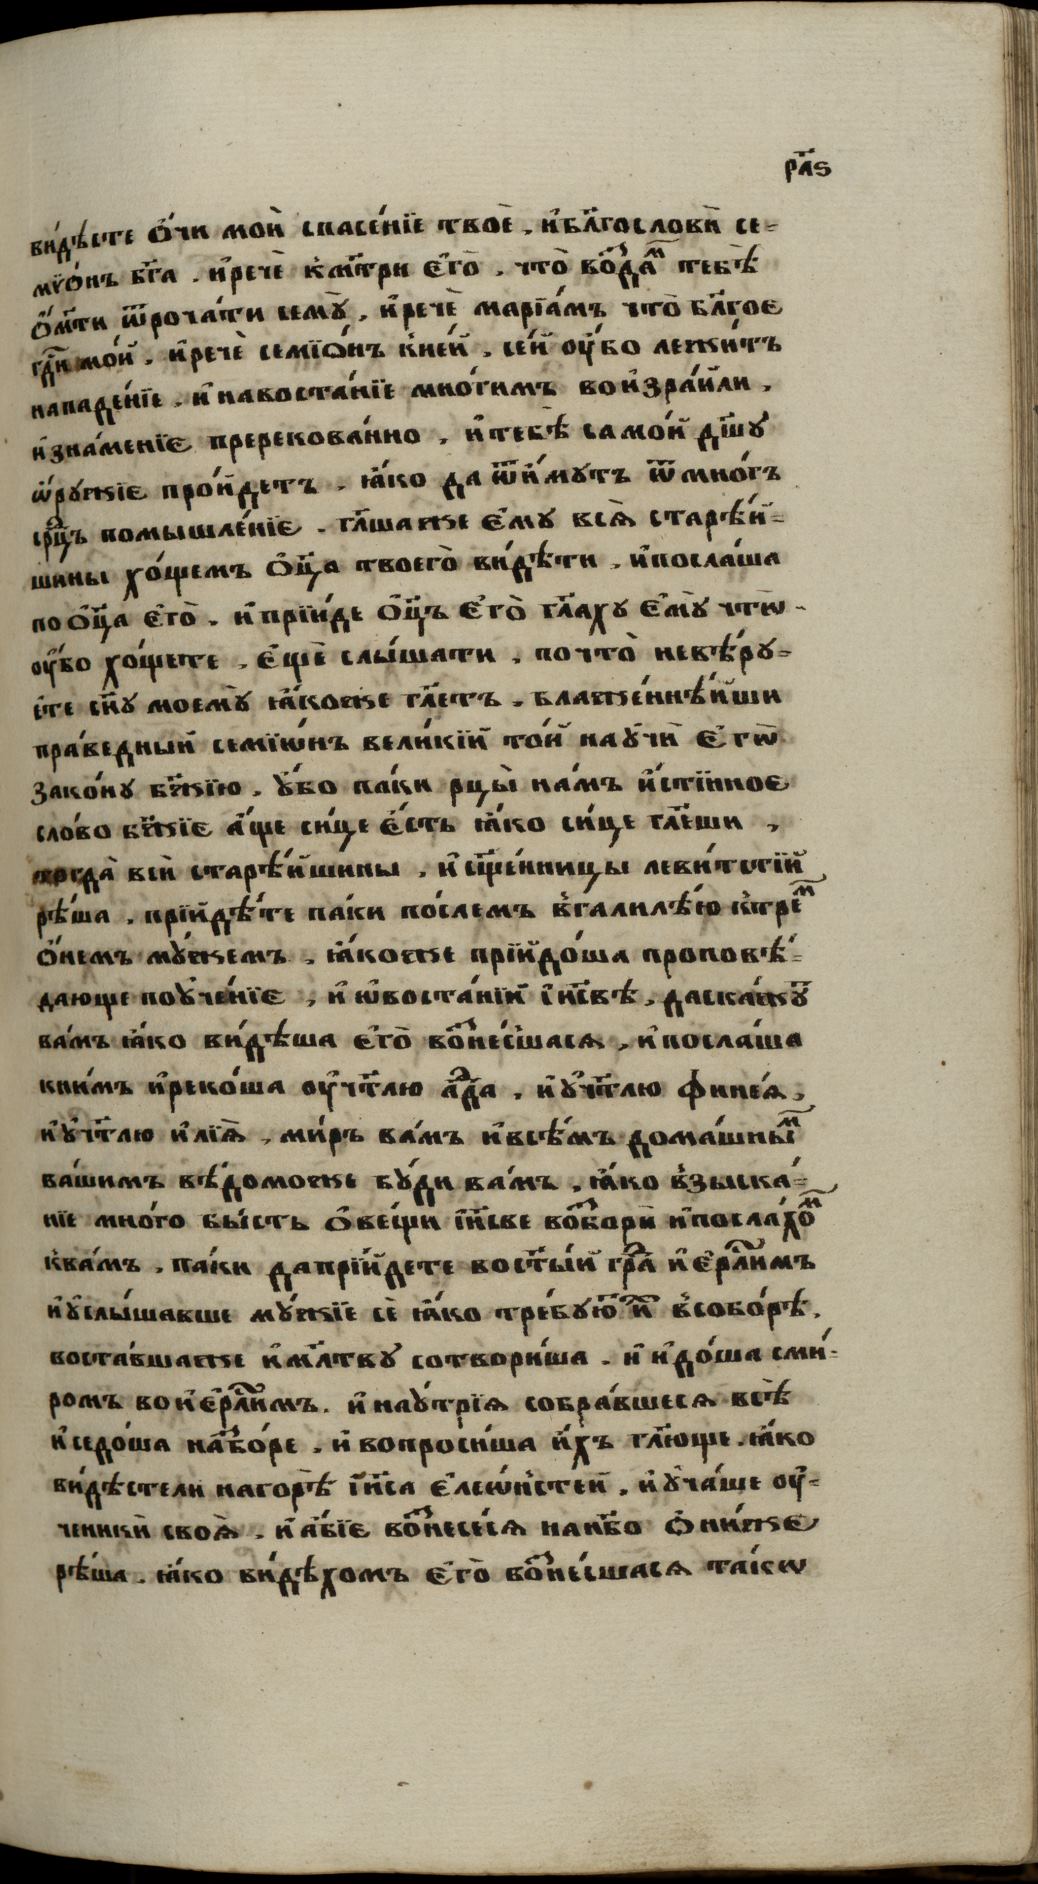 рл҃ѕ
ви́дѣсте ѻ҆́чи моѝ спасе́нїе твоѐ . и҆бл҃гословѝ се=
мїѻ́нъ бг҃а . и҆речѐ км҃три є҆го̀ . что̀ во́здамъ тебѣ̀
ѻ҆м҃ти ѿроча́ти семꙋ̀ . и҆речѐ марїа́мъ что̀ бл҃гое
гдⷭ҇и мо́й . и҆речѐ семїѻ́нъ кне́й . се́й оу҆́бо лежи́тъ
нападе́нїе . и҆ навоста́нїе мно́гимъ во и҆зра́или .
и҆зна́менїе пререкова́нно . и҆тебѣ̀ само́й дш҃ꙋ
ѡ҆рꙋ́жїе про́йдетъ . ꙗ҆́ко да ѿи́мꙋтъ ѿ мно́гъ
срⷣцъ помышле́нїе . гл҃шаже є҆мꙋ всѧ̀ старѣ́й=
шины хо́щемъ ѻ҆ц҃а твоего̀ ви́дѣти . и҆посла́ша
по ѻ҆ц҃а є҆го̀ . и҆ прїи́де ѻ҆ц҃ъ є҆го̀ гл҃ахꙋ є҆мꙋ̀ чтѡ̀
оу҆́бо хо́щете . є҆щѐ слы́шати . почто̀ невѣ́рꙋ=
ете сн҃ꙋ моемꙋ̀ ꙗ҆́коже гл҃етъ . блаже́ннѣйши
пра́ведный семїѡ́нъ вели́кїй то́й наꙋчѝ є҆гѡ̀
зако́нꙋ бж҃їю . ꙋ҆́бо па́ки рцы̀ на́мъ и҆́стїнное
сло́во бж҃їе а҆́ще си́це є҆́сть ꙗ҆́ко си́це гл҃еши .
тогда̀ всѝ старѣ́йшины . и҆ сщ҃е́нницы леви́тстїй
рѣ́ша . прїидѣ́те па́ки по́слемъ в҆галилѣ́ю к҆трем
ѻ҆́немъ мꙋ́жемъ . ꙗ҆́коже прїидо́ша проповѣ́=
дающе поꙋче́нїе . и҆ ѡ҆воста́нїи і҆и҃свѣ . даска́жꙋтъ
ва́мъ ꙗ҆́ко ви́дѣша є҆го̀ вознесшасѧ . и҆посла́ша
кни́мъ и҆реко́ша оу҆чт҃лю а҆да . и҆ꙋ҆чт҃лю финеа́ .
и҆ꙋ҆чт҃лю и҆лїѧ̀ . ми́ръ ва́мъ и҆всѣ́мъ дома́шнымъ
ва́шимъ вѣ́доможе бꙋ́ди ва́мъ . ꙗ҆́ко в҆зыска́=
нїе мно́го бы́сть ѻ҆ве́щи і҆и҃све восборѝ и҆послахом
к҆ва́мъ . па́ки да прїи́дете востⷭ҇ый градъ и҆є҆рⷭ҇лимъ
и҆ꙋслы́шавше мꙋ́жїе сѐ ꙗ҆́ко требꙋ́ютъ ихъ в҆собо́рѣ .
воста́вшаже и҆мл҃твꙋ сотвори́ша . и҆ и҆до́ша сми́=
ромъ во и҆є҆рⷭ҇лимъ . и҆ наꙋ́трїѧ собра́вшесѧ всѣ̀
и҆седо́ша насбо́ре . и҆ вопроси́ша и҆́хъ гл҃юще . ꙗ҆́ко
ви́дѣстели нагорѣ̀ і҆и҃са є҆леѡ́нстей . и҆ꙋ҆ча́ще оу҆=
ченикѝ своѧ̀ . и҆ а҆́бїе вознесе́сѧ нан҃бо ѻ҆ни́же
рѣ́ша . ꙗ҆́ко ви́дѣхомъ є҆го̀ вознесшасѧ та́кѡ